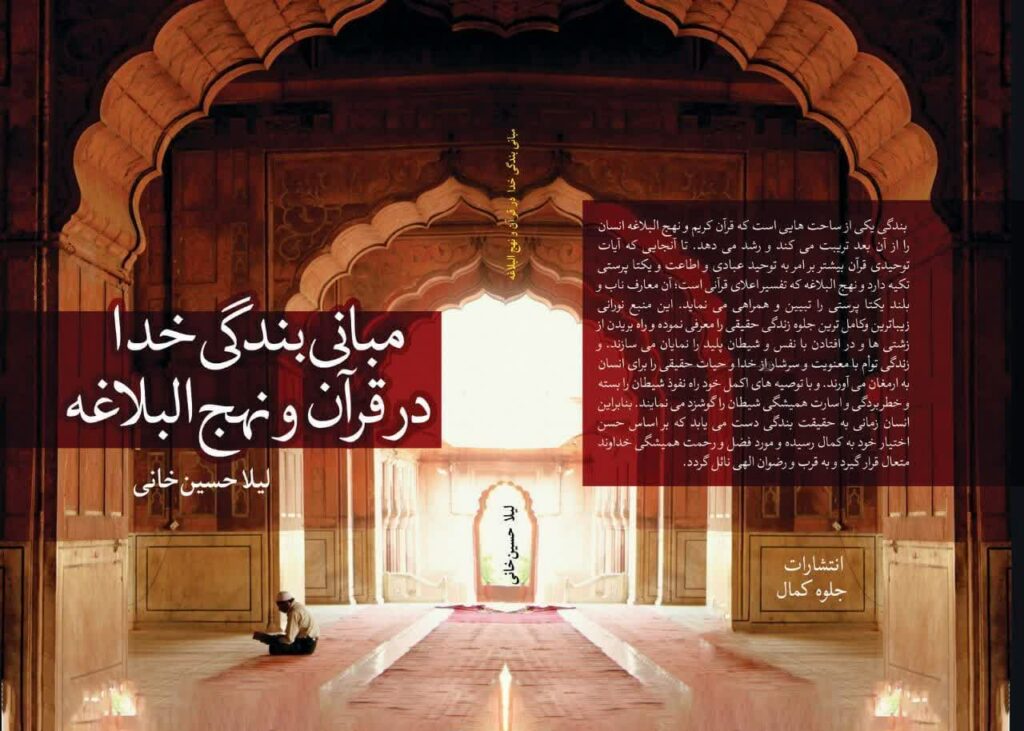 مبانی بندگی خدا
در قرآن و نهج البلاغه
لیلا حسین خانی
مبانی بندگی خدا در قرآن و نهج البلاغه
لیلا حسین خانی
بندگی یکی از ساحت هایی است که قرآن کریم و نهج البلاغه انسان
را از آن بعد تربیت می کند و رشد می دهد. تا آنجایی که آیات
توحیدی قرآن بیشتر بر امر به توحید عبادی و اطاعت و یکتا پرستی
تکیه دارد و نهج البلاغه که تفسیر اعلای قرآنی است؛ آن معارف ناب و
بلند یکتا پرستی را تبیین و همراهی می نماید. این منبع نورانی
زیباترین وکامل ترین جلوه زندگی حقیقی را معرفی نموده و راه بریدن از
زشتی ها و در افتادن با نفس و شیطان پلید را نمایان می سازند. و
زندگی توأم با معنویت و سرشار از خدا و حیات حقیقی را برای انسان
به ارمغان می آورند. و با توصیه های اکمل خود راه نفوذ شیطان را بسته
و خطر بردگی و اسارت همیشگی شیطان را گوشزد می نمایند. بنابراین
انسان زمانی به حقیقت بندگی دست می یابد که بر اساس حسن
اختیار خود به کمال رسیده و مورد فضل و رحمت همیشگی خداوند
متعال قرار گیرد و به قرب و رضوان الهی نائل گردد.
انتشارات
جلوه کمال